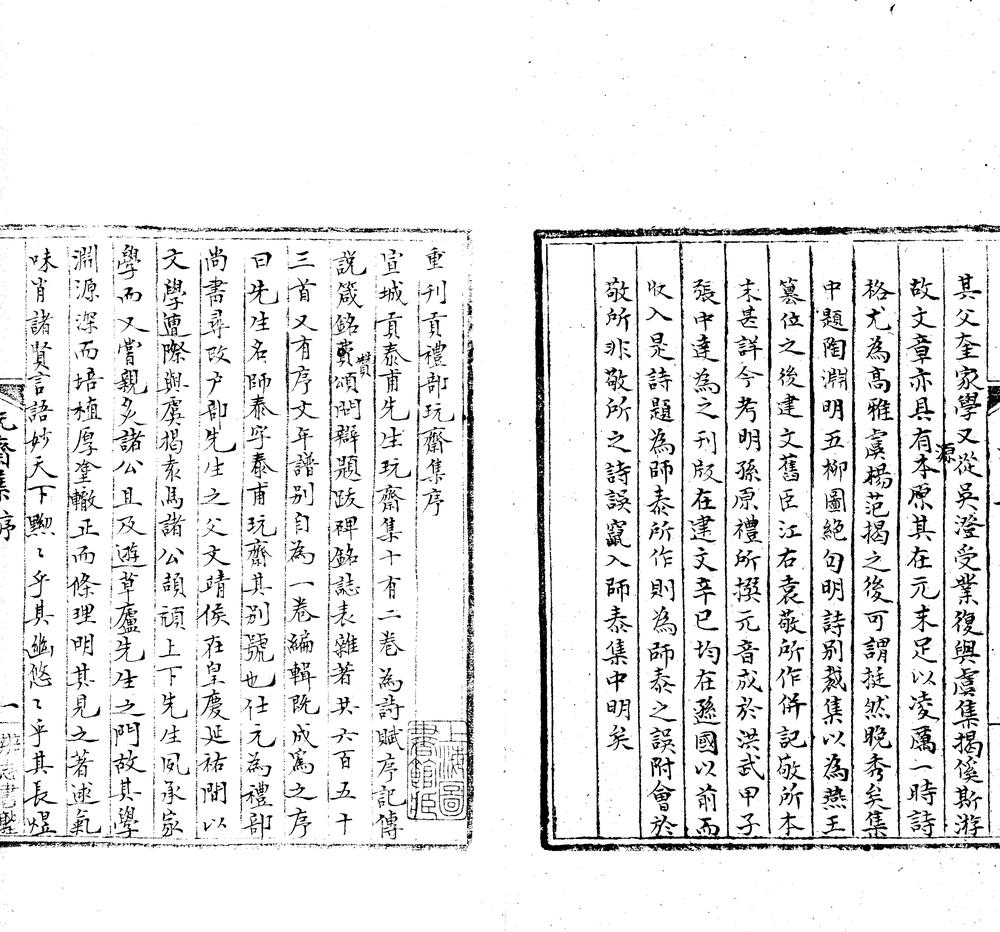 其父奎家學又從吳澄受業復與虞集揭傒斯游
故文章亦具有本原其在元末足以凌厲一時詩
源
格尤為高雅虞楊范揭之後可謂挺然晚秀矣集
中題陶淵明五柳圖絕句明詩別裁集以為燕王
篡位之後建文舊臣江右袁敬所作併記敬所本
末甚詳今考明孫原禮所撰元音成於洪武甲子
張中達為之刊版在建文辛巳均在遜國以前而
收入是詩題為師泰所作則為師泰之誤附會於
敬所非敬所之詩誤竄入師泰集中明矣
重刊貢禮部玩齋集序
宣城貢泰甫先生玩齋集十有二卷為詩賦序記傳
說箴銘費頌問辯題跋碑銘誌表雜著共六百五十
贊
三首又有序文年譜別自為一卷編輯既成為之序
曰先生名師泰字泰甫玩齋其別號也仕元為禮部
尚書尋改户部先生之父文靖侯在皇慶延祐間以
文學遭際與虞揭袁馬諸公頡頏上下先生夙承家
學而又嘗親炙諸公且及遊草廬先生之門故其學
淵源深而培植厚塗轍正而條理明其見之著述氣
味肖諸賢言語妙天下黝〻乎其幽悠〻乎其長煜
玩齋集序
一
上海圖書館藏